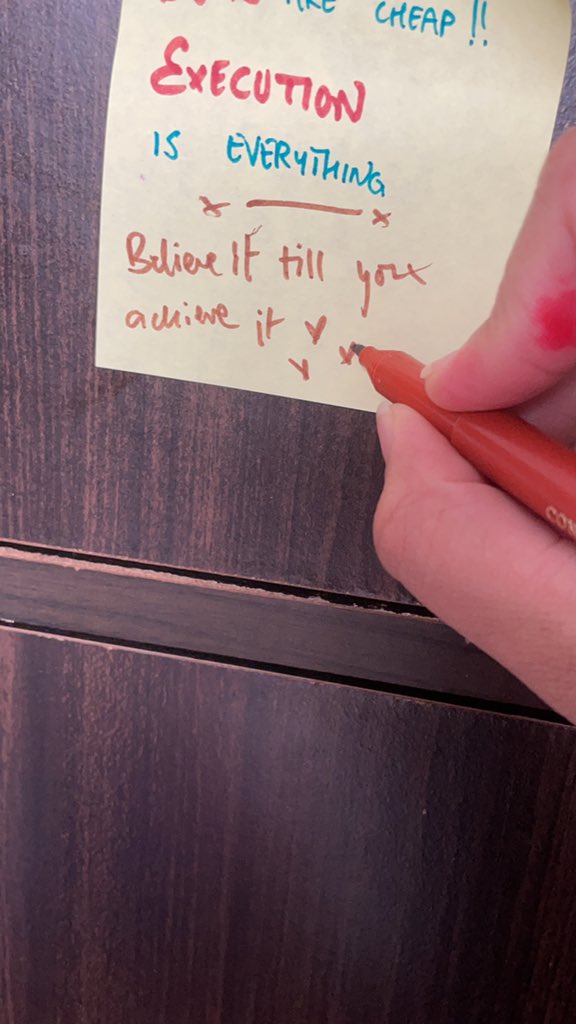 ARE CHEAP!!
EXECUTION
IS EVERYTHING
Believe It till you
achieve it